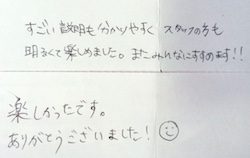 すごい説明も分かりやすく スタッフの方も
明るくて楽しめました。またみんなにすすめます!!
楽しかったです。
ありがとうございました!